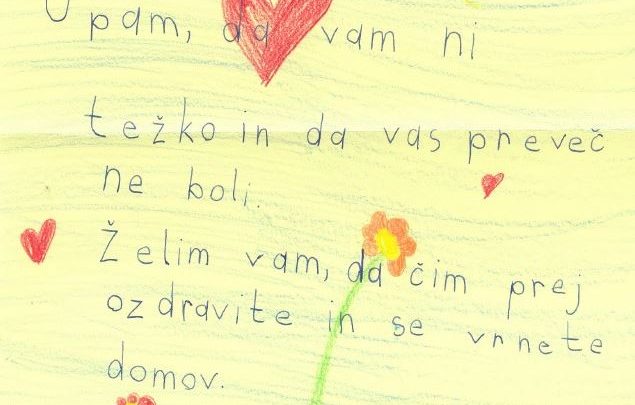 Upam, da vam ni
težko in da vas preveč
ne boli.
Želim vam, da čim prej
ozdravite in se vrnete
domov.